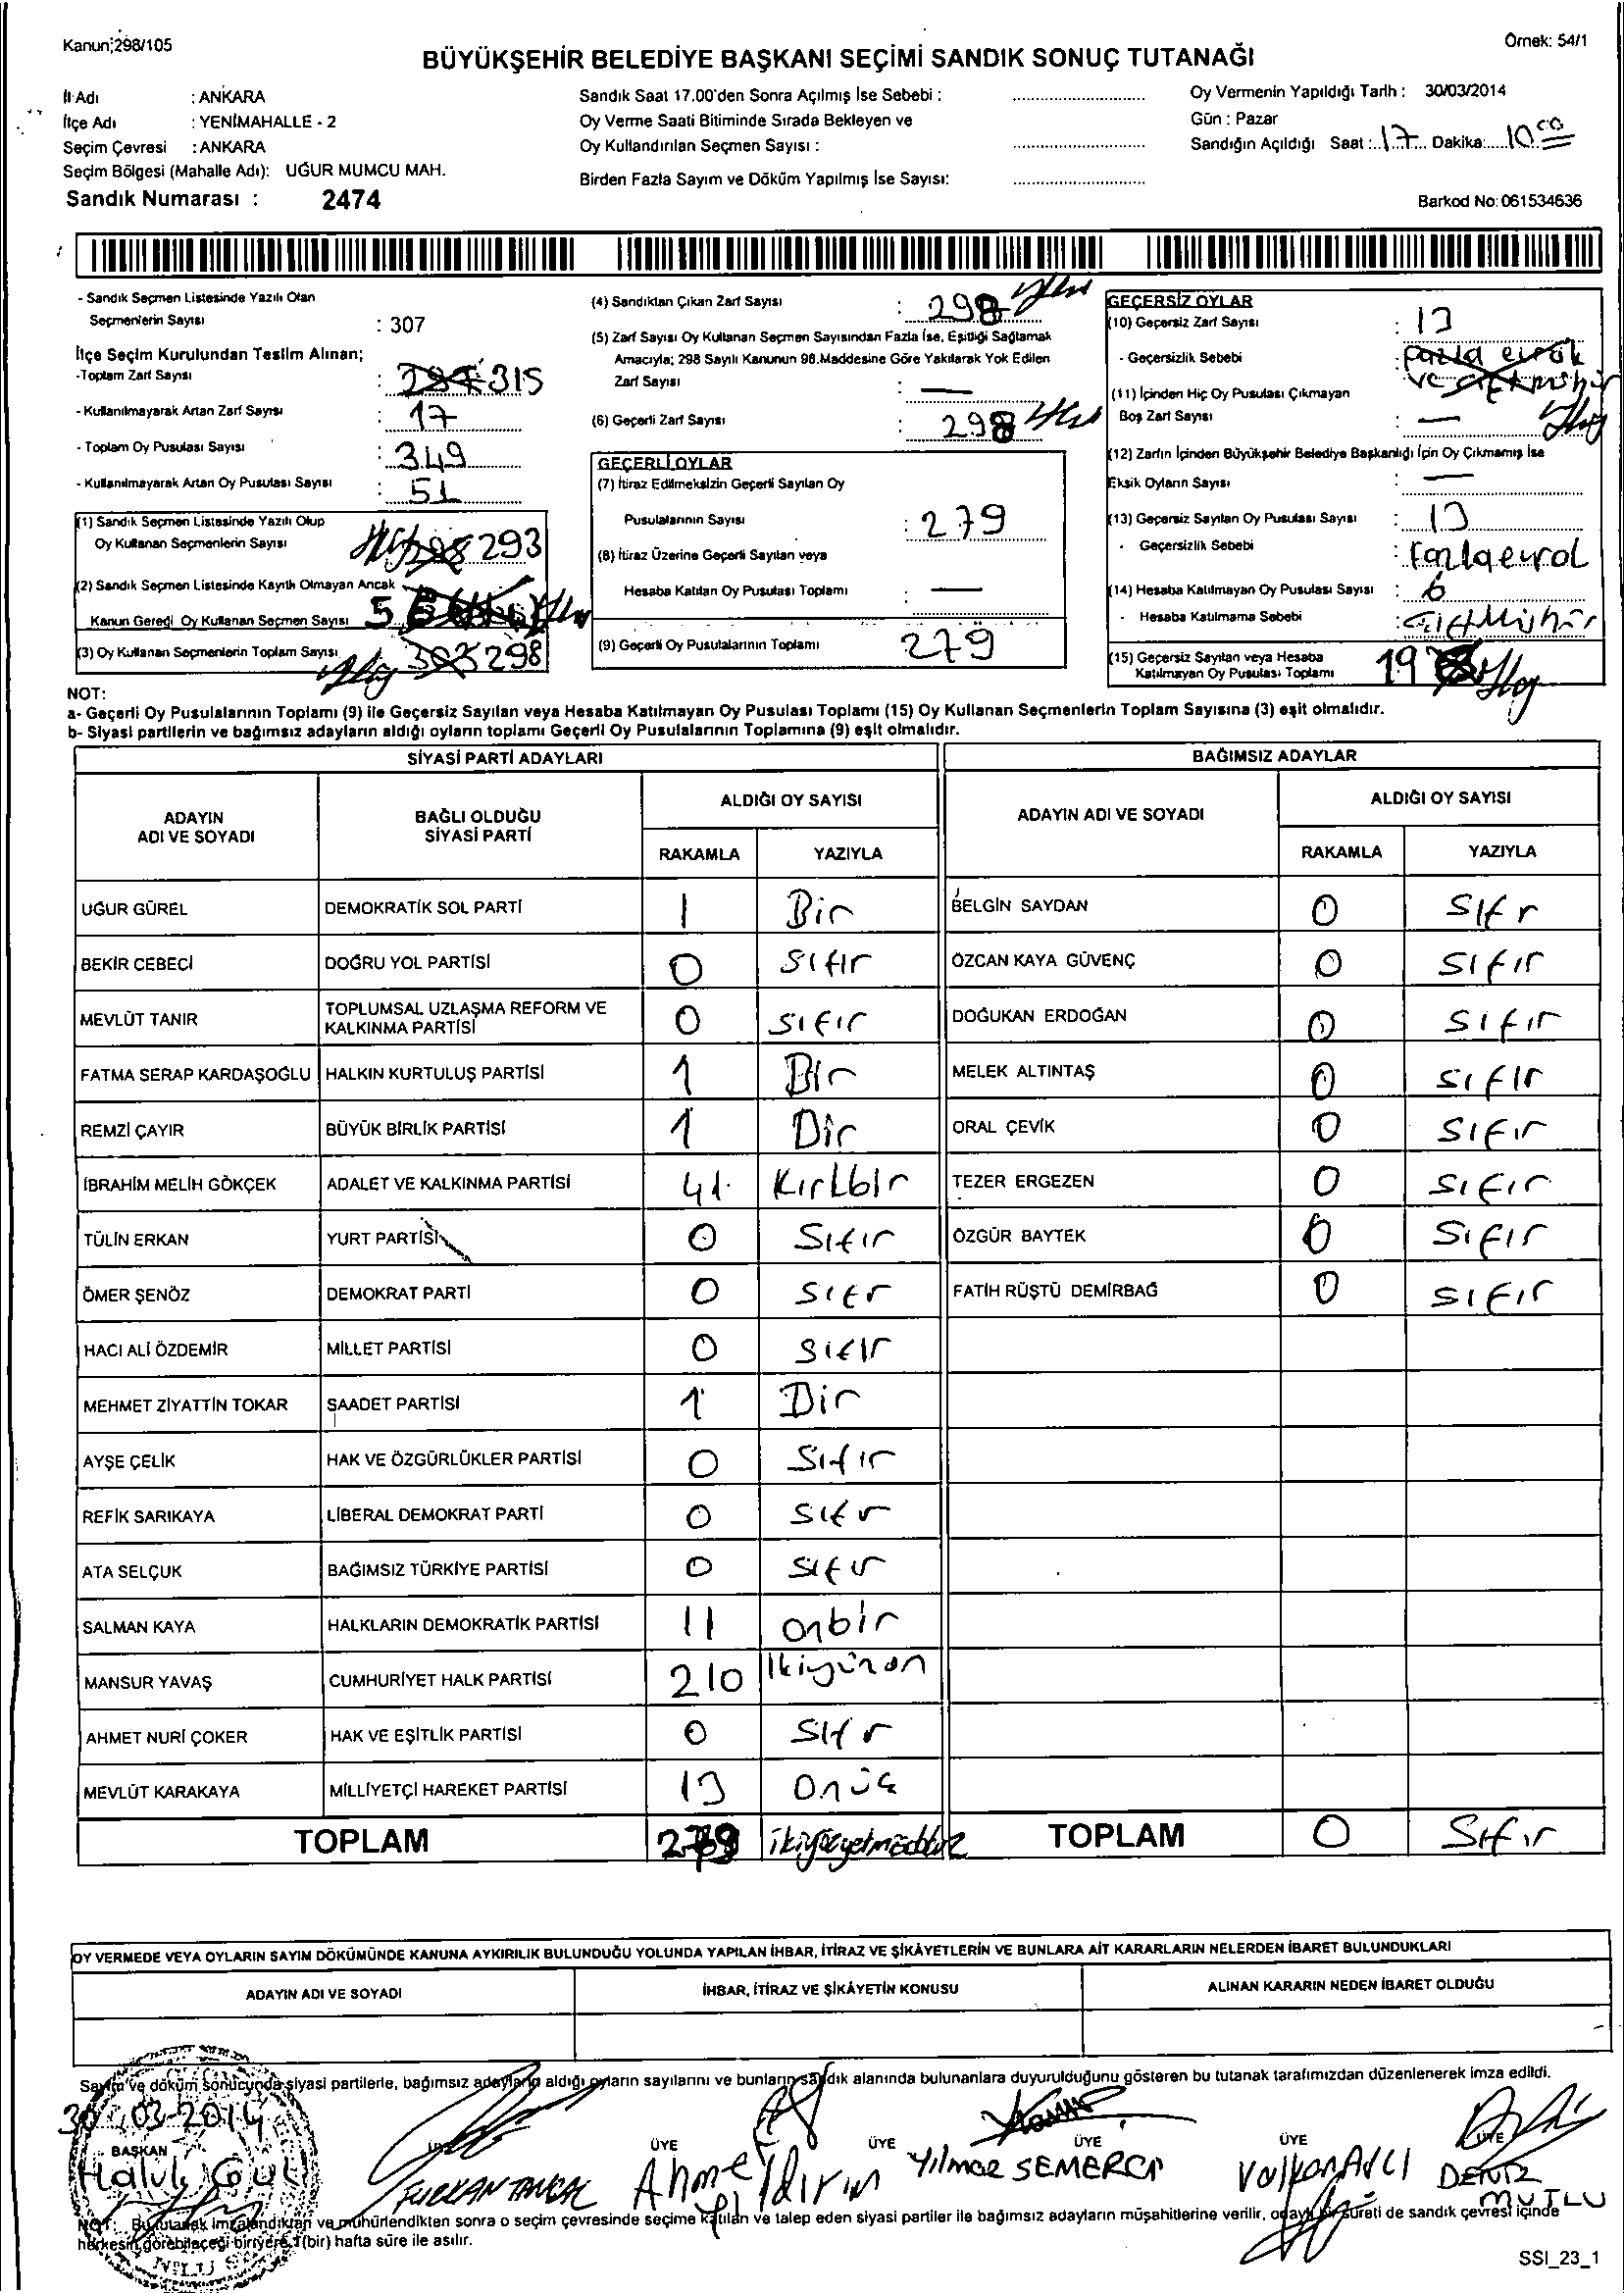 Kanun;298/105
Örnek: 54/1
BÜYÜKŞEHİR BELEDİYE BAŞKANI SEÇİMİ SANDIK SONUÇ TUTANAĞI
İl Adı : ANKARA
İlçe Adı : YENİMAHALLE - 2
Seçim Çevresi : ANKARA
Seçim Bölgesi (Mahalle Adı): UĞUR MUMCU MAH.
Sandık Numarası : 2474
Sandık Saat 17.00'den Sonra Açılmış İse Sebebi :
Oy Verme Saati Bitiminde Sırada Bekleyen ve
Oy Kullandırılan Seçmen Sayısı :
Birden Fazla Sayım ve Döküm Yapılmış İse Sayısı:
Oy Vermenin Yapıldığı Tarih : 30/03/2014
Gün : Pazar
Sandığın Açıldığı Saat : 17 Dakika: 10
Barkod No: 061534636
- Sandık Seçmen Listesinde Yazılı Olan
Seçmenlerin Sayısı : 307
İlçe Seçim Kurulundan Teslim Alınan;
-Toplam Zarf Sayısı : 315
- Kullanılmayarak Artan Zarf Sayısı : 17
- Toplam Oy Pusulası Sayısı : 349
- Kullanılmayarak Artan Oy Pusulası Sayısı : 51
(1) Sandık Seçmen Listesinde Yazılı Olup
Oy Kullanan Seçmenlerin Sayısı 293
(2) Sandık Seçmen Listesinde Kayıtlı Olmayan Ancak
Kanun Gereği Oy Kullanan Seçmen Sayısı 5
(3) Oy Kullanan Seçmenlerin Toplam Sayısı 298
(4) Sandıktan Çıkan Zarf Sayısı : 298
(5) Zarf Sayısı Oy Kullanan Seçmen Sayısından Fazla İse, Eşitliği Sağlamak
Amacıyla; 298 Sayılı Kanunun 98.Maddesine Göre Yakılarak Yok Edilen
Zarf Sayısı : —
(6) Geçerli Zarf Sayısı : 298
GEÇERLİ OYLAR
(7) İtiraz Edilmeksizin Geçerli Sayılan Oy
Pusulalarının Sayısı : 279
(8) İtiraz Üzerine Geçerli Sayılan veya
Hesaba Katılan Oy Pusulası Toplamı : —
(9) Geçerli Oy Pusulalarının Toplamı 279
GEÇERSİZ OYLAR
(10) Geçersiz Zarf Sayısı : 13
- Geçersizlik Sebebi : fazla evrak
(11) İçinden Hiç Oy Pusulası Çıkmayan
Boş Zarf Sayısı : —
(12) Zarfın İçinden Büyükşehir Belediye Başkanlığı İçin Oy Çıkmamış İse
Eksik Oyların Sayısı : —
(13) Geçersiz Sayılan Oy Pusulası Sayısı : 13
- Geçersizlik Sebebi : fazla evrak
(14) Hesaba Katılmayan Oy Pusulası Sayısı : 6
- Hesaba Katılmama Sebebi : çift Mühür
(15) Geçersiz Sayılan veya Hesaba
Katılmayan Oy Pusulası Toplamı 19
NOT:
a- Geçerli Oy Pusulalarının Toplamı (9) ile Geçersiz Sayılan veya Hesaba Katılmayan Oy Pusulası Toplamı (15) Oy Kullanan Seçmenlerin Toplam Sayısına (3) eşit olmalıdır.
b- Siyasi partilerin ve bağımsız adayların aldığı oyların toplamı Geçerli Oy Pusulalarının Toplamına (9) eşit olmalıdır.
SİYASİ PARTİ ADAYLARI BAĞIMSIZ ADAYLAR
ADAYIN ADI VE SOYADI BAĞLI OLDUĞU SİYASİ PARTİ ALDIĞI OY SAYISI ADAYIN ADI VE SOYADI ALDIĞI OY SAYISI
RAKAMLA YAZIYLA RAKAMLA YAZIYLA
UĞUR GÜREL DEMOKRATİK SOL PARTİ 1 Bir BELGİN SAYDAN 0 Sıfr
BEKİR CEBECİ DOĞRU YOL PARTİSİ 0 Sıfır ÖZCAN KAYA GÜVENÇ 0 Sıfır
MEVLÜT TANIR TOPLUMSAL UZLAŞMA REFORM VE KALKINMA PARTİSİ 0 Sıfır DOĞUKAN ERDOĞAN 0 Sıfır
FATMA SERAP KARDAŞOĞLU HALKIN KURTULUŞ PARTİSİ 1 Bir MELEK ALTINTAŞ 0 Sıfır
REMZİ ÇAYIR BÜYÜK BİRLİK PARTİSİ 1 Bir ORAL ÇEVİK 0 Sıfır
İBRAHİM MELİH GÖKÇEK ADALET VE KALKINMA PARTİSİ 41 Kırkbir TEZER ERGEZEN 0 Sıfır
TÜLİN ERKAN YURT PARTİSİ 0 Sıfır ÖZGÜR BAYTEK 0 Sıfır
ÖMER ŞENÖZ DEMOKRAT PARTİ 0 Sıfr FATİH RÜŞTÜ DEMİRBAĞ 0 Sıfır
HACI ALİ ÖZDEMİR MİLLET PARTİSİ 0 Sıfır
MEHMET ZİYATTİN TOKAR SAADET PARTİSİ 1 Bir
AYŞE ÇELİK HAK VE ÖZGÜRLÜKLER PARTİSİ 0 Sıfır
REFİK SARIKAYA LİBERAL DEMOKRAT PARTİ 0 Sıfır
ATA SELÇUK BAĞIMSIZ TÜRKİYE PARTİSİ 0 Sıfır
SALMAN KAYA HALKLARIN DEMOKRATİK PARTİSİ 11 onbir
MANSUR YAVAŞ CUMHURİYET HALK PARTİSİ 210 İkiyüzon
AHMET NURİ ÇOKER HAK VE EŞİTLİK PARTİSİ 0 Sıfr
MEVLÜT KARAKAYA MİLLİYETÇİ HAREKET PARTİSİ 13 Onüç
TOPLAM 279 ikiyüzyetmişdokuz TOPLAM 0 Sıfır
OY VERMEDE VEYA OYLARIN SAYIM DÖKÜMÜNDE KANUNA AYKIRILIK BULUNDUĞU YOLUNDA YAPILAN İHBAR, İTİRAZ VE ŞİKÂYETLERİN VE BUNLARA AİT KARARLARIN NELERDEN İBARET BULUNDUKLARI
ADAYIN ADI VE SOYADI İHBAR, İTİRAZ VE ŞİKÂYETİN KONUSU ALINAN KARARIN NEDEN İBARET OLDUĞU
Sayım ve döküm sonucunda siyasi partilerle, bağımsız adayların aldığı oyların sayılarını ve bunların sandık alanında bulunanlara duyurulduğunu gösteren bu tutanak tarafımızdan düzenlenerek imza edildi.
30.03.2014
BAŞKAN ÜYE ÜYE ÜYE ÜYE ÜYE ÜYE
Haluk Gül FURKAN Ahmet Yıldırım Yılmaz SEMERCİ Volkan AVCI DENİZ MUTLU
NOT: Bu tutanak imzalandıktan ve mühürlendikten sonra o seçim çevresinde seçime katılan ve talep eden siyasi partiler ile bağımsız adayların müşahitlerine verilir, onaylı bir sureti de sandık çevresi içinde
herkesin görebileceği bir yere 1(bir) hafta süre ile asılır.
SSI_23_1